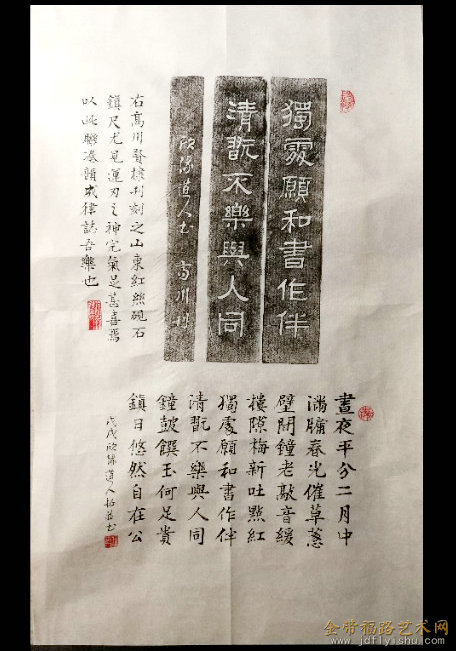 獨處願和書作伴
清翫不樂與人同
道人書 高川刊
右高川賢棣刊刻之山東紅絲硯石
鎮尺尤見運刃之神完氣足甚喜焉
以此聯湊韻成律誌吾樂也
晝夜平分二月中
滿牖春光催草蔥
壁間鐘老敲音緩
樓隙梅新吐點紅
獨處願和書作伴
清翫不樂與人同
鐘皷饌玉何足貴
鎮日悠然自在公
戊戌道人拓並書
金带福路艺术网
www.jdflyishu.com